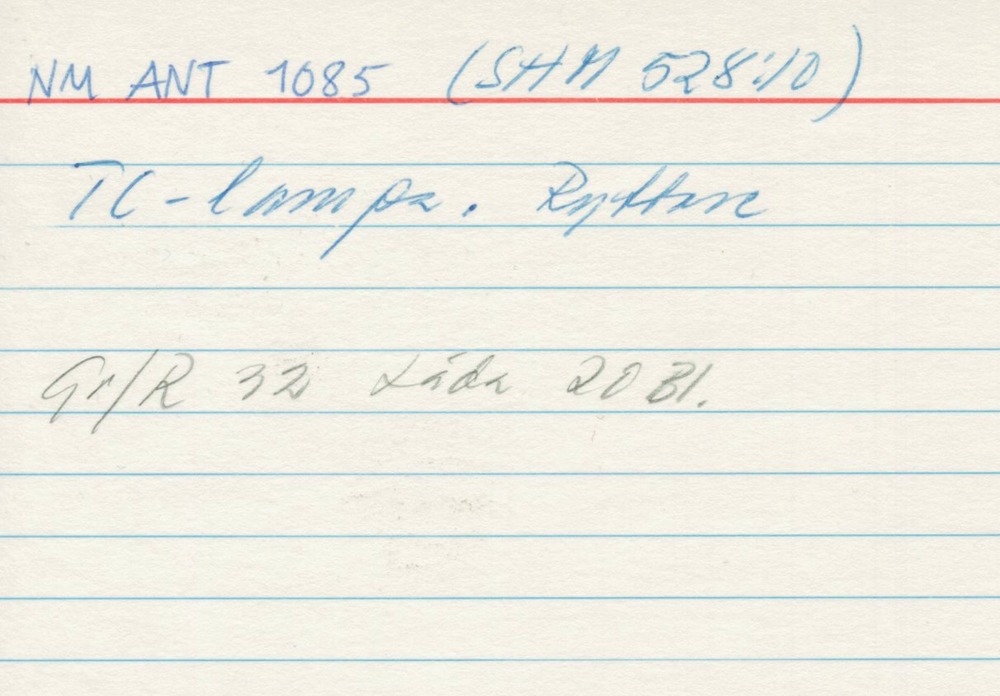 NM ANT 1085 (SHM 528:10)
TC-lampa. Ryttare
Gr/R 32 Låda 20 Bl.